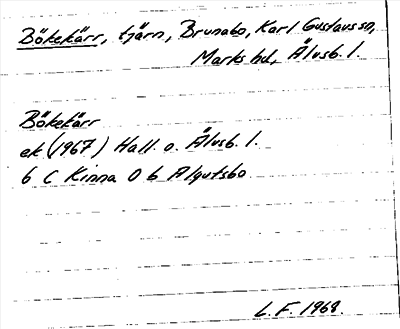 Bökekärr, tjärn, Brunabo, Karl Gustavs sn,
Marks hd, Älvsb. l.
Bökekärr
ek (1967) Hall. o. Älvsb. l.
6 C Kinna 0 b Algutsbo
L. F. 1969.